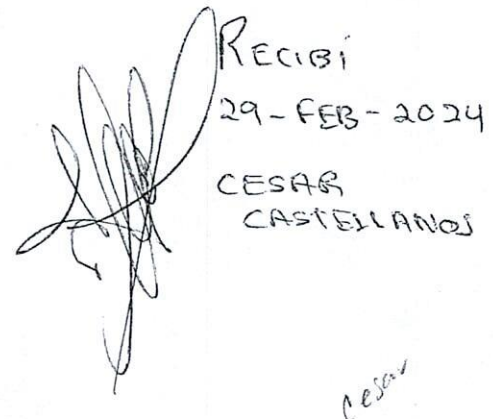 RECIBÍ
29-FEB-2024
CESAR
CASTELLANOS
cesar